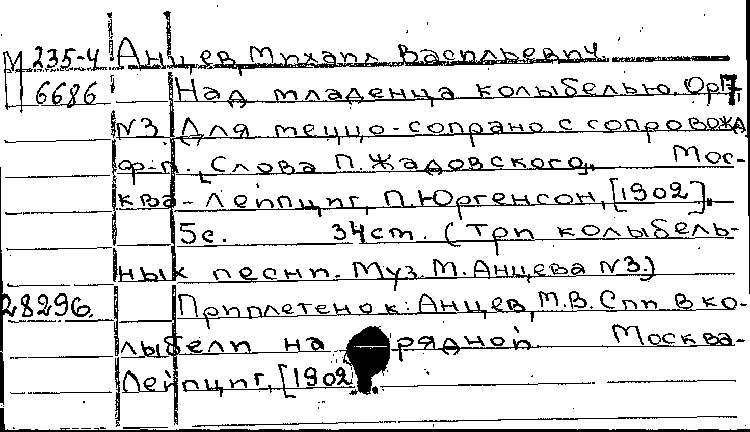 М 235-4 Анцев, Михаил Васильевич
6686 Над младенца колыбелью. Ор. 7,
N3. Для меццо-сопрано с сопровожд.
ф-п. Слова П. Жадовского. Мос-
ква-Лейпциг, П. Юргенсон, [1902].
5с. 34см. (Три колыбель-
ных песни. Муз. М. Анцева N3.)
28296. Приплетено к: Анцев, М.В. Спи в ко-
лыбели на рядной. Москва-
Лейпциг, [1902